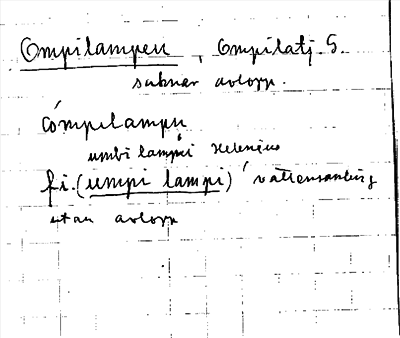 Ompilampen, Ompilatj. S.
saknar avlopp.
ómpilampẹn
umbi lampi Helenius
fi. (umpi lampi) 'vattensamling
utan avlopp